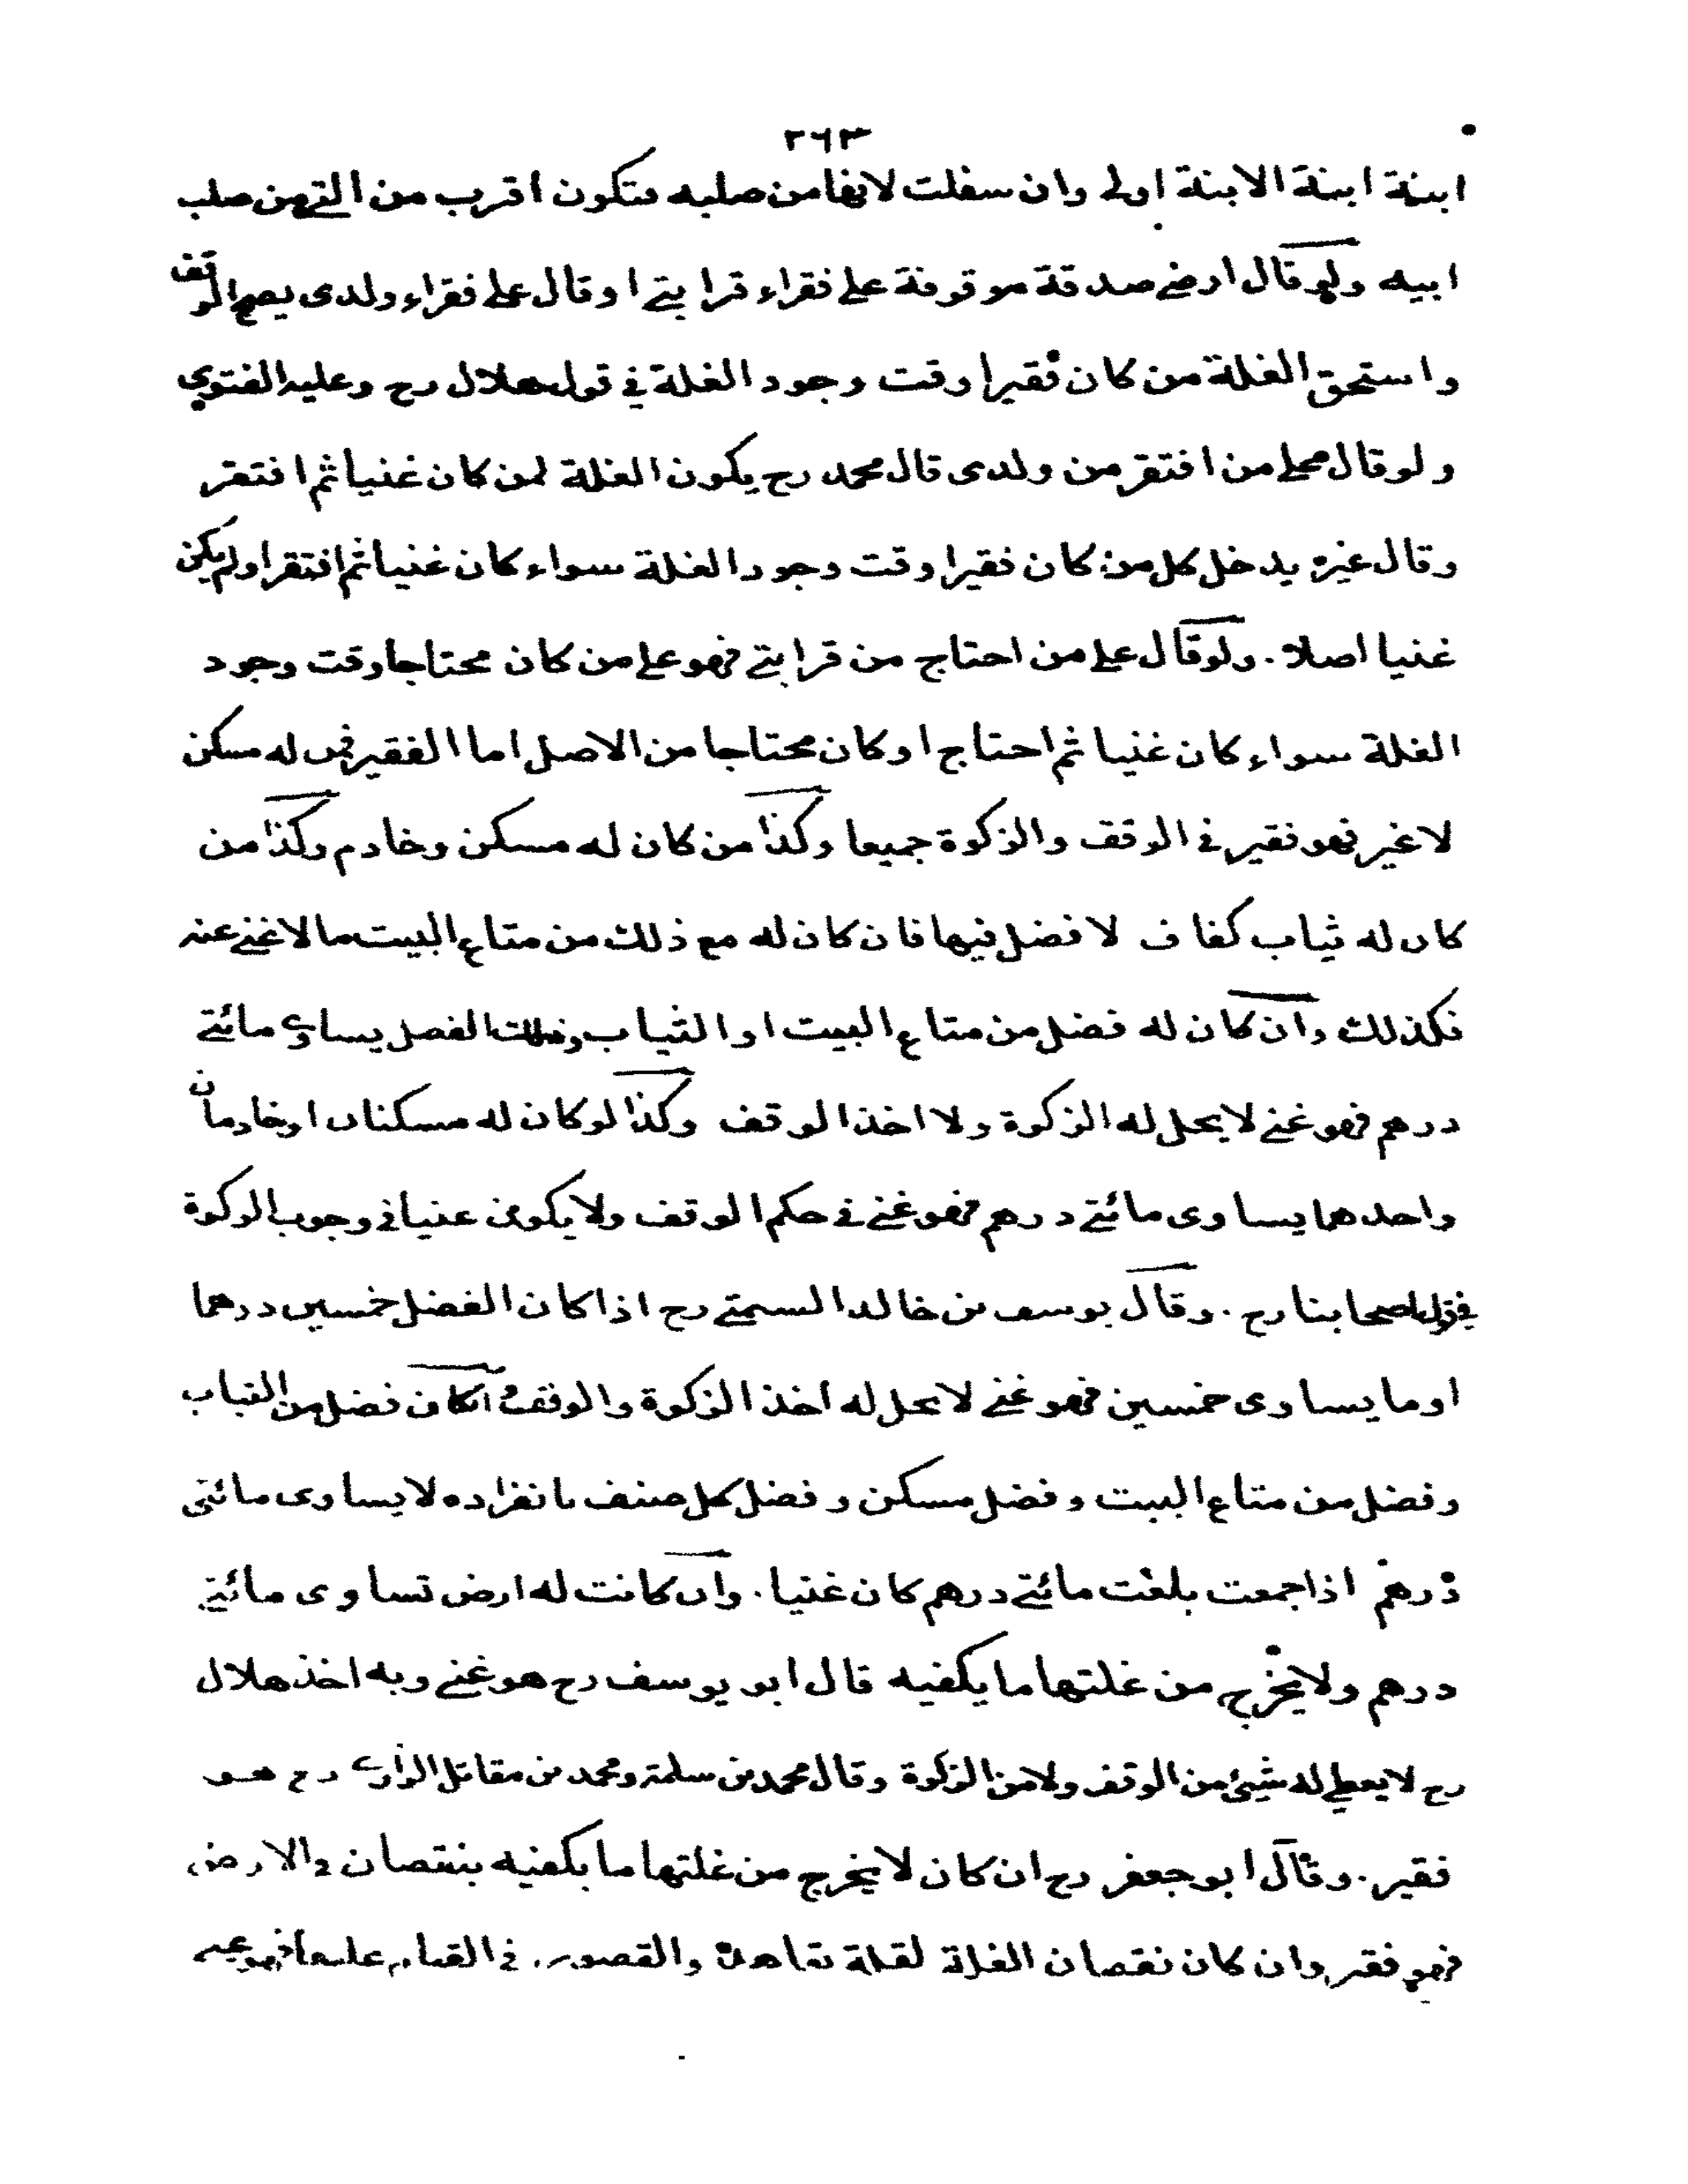 ٢٦٣
ابنة ابنة الابنة اولى وان سفلت لانها من صلبه فتكون اقرب من التي من صلب
ابيه ولو قال ارضي صدقة موقوفة على فقراء قرابتي او قال على فقراء ولدى يصح الوقف
واستحق الغلة من كان فقيرا وقت وجود الغلة في قول هلال رح وعليه الفتوى
ولو قال على من افتقر من ولدى قال محمد رح يكون الغلة لمن كان غنيا ثم افتقر
وقال غيره يدخل كل من كان فقيرا وقت وجود الغلة سواء كان غنيا ثم افتقر او لم يكن
غنيا اصلا . ولو قال على من احتاج من قرابتي فهو على من كان محتاجا وقت وجود
الغلة سواء كان غنيا ثم احتاج او كان محتاجا من الاصل اما الفقير فمن له مسكن
لا غير فهو فقير في الوقف والزكوة جميعا وكذا من كان له مسكن وخادم وكذا من
كان له ثياب كفاف لا فضل فيها فان كان له مع ذلك من متاع البيت ما لا غنى عنه
فكذلك وان كان له فضل من متاع البيت او الثياب وذلك الفضل يساوي مائتي
درهم فهو غني لا يحل له الزكوة ولا اخذ الوقف وكذا لو كان له مسكنان او خادمان
واحدهما يساوى مائتي درهم فهو غني في حكم الوقف ولا يكون غنيا في وجوب الزكوة
في قول اصحابنا رح . وقال يوسف بن خالد السمتي رح اذا كان الفضل خمسين درهما
او ما يساوى خمسين فهو غني لا يحل له اخذ الزكوة والوقف وان كان فضل من الثياب
وفضل من متاع البيت وفضل مسكن وفضل كل صنف بانفراده لا يساوى مائتى
درهم اذا جمعت بلغت مائتي درهم كان غنيا . وان كانت له ارض تساوى مائتي
درهم ولا يخرج من غلتها ما يكفيه قال ابو يوسف رح هو غني وبه اخذ هلال
رح لا يعطى له شيئ من الوقف ولا من الزكوة وقال محمد بن سلمة ومحمد بن مقاتل الرازي رح هو
فقير . وقال ابو جعفر رح ان كان لا يخرج من غلتها ما يكفيه بنقصان في الارض
فهو فقير وان كان نقصان الغلة لقلة تعاهده والقصور في القيام عليها فهو غني